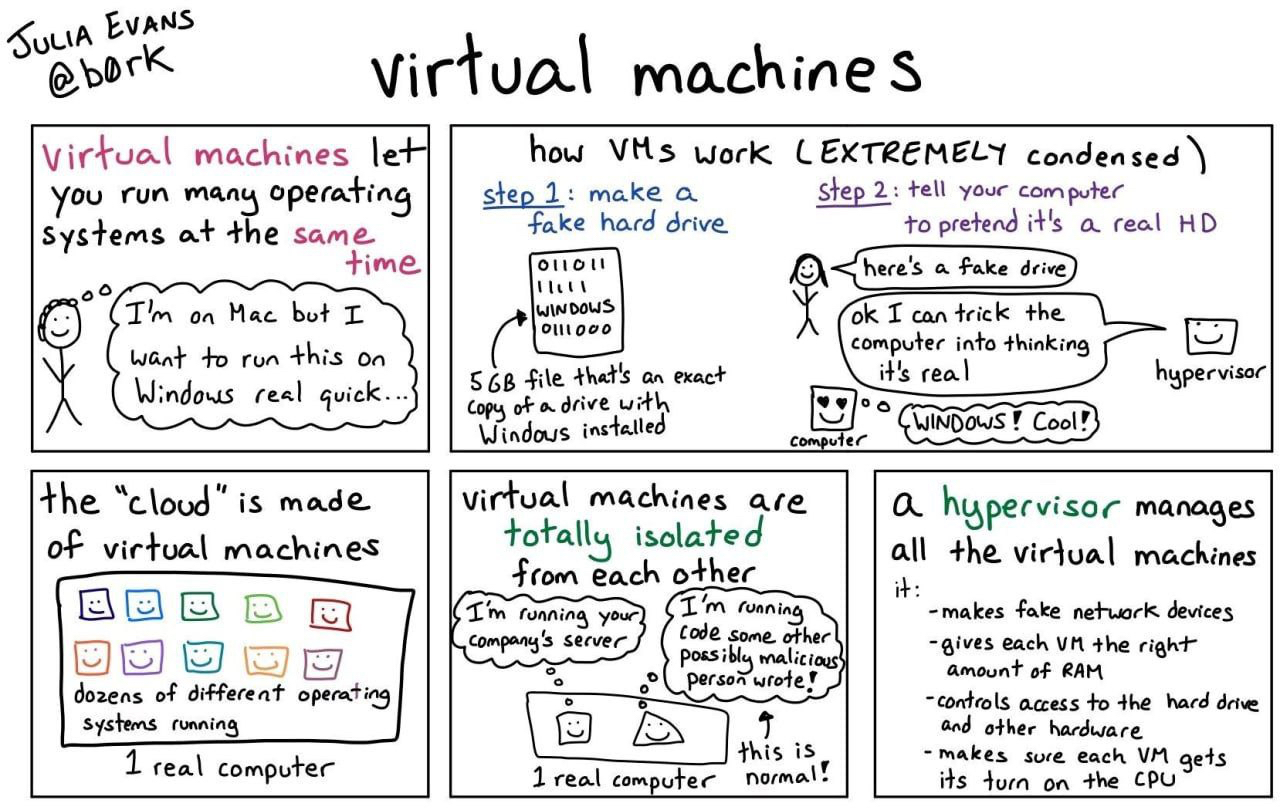 JULIA EVANS
@b0rk
virtual machines
virtual machines let
you run many operating
systems at the same
time
I'm on Mac but I
want to run this on
Windows real quick...
how VMs work (EXTREMELY condensed)
step 1: make a
fake hard drive
011011
11111
WINDOWS
0111000
5 GB file that's an exact
copy of a drive with
Windows installed
step 2: tell your computer
to pretend it's a real HD
here's a fake drive
ok I can trick the
computer into thinking
it's real
hypervisor
computer
WINDOWS! Cool!
the "cloud" is made
of virtual machines
dozens of different operating
systems running
1 real computer
virtual machines are
totally isolated
from each other
I'm running your
company's server
I'm running
code some other
possibly malicious
person wrote!
1 real computer
this is
normal!
a hypervisor manages
all the virtual machines
it:
- makes fake network devices
- gives each VM the right
amount of RAM
- controls access to the hard drive
and other hardware
- makes sure each VM gets
its turn on the CPU